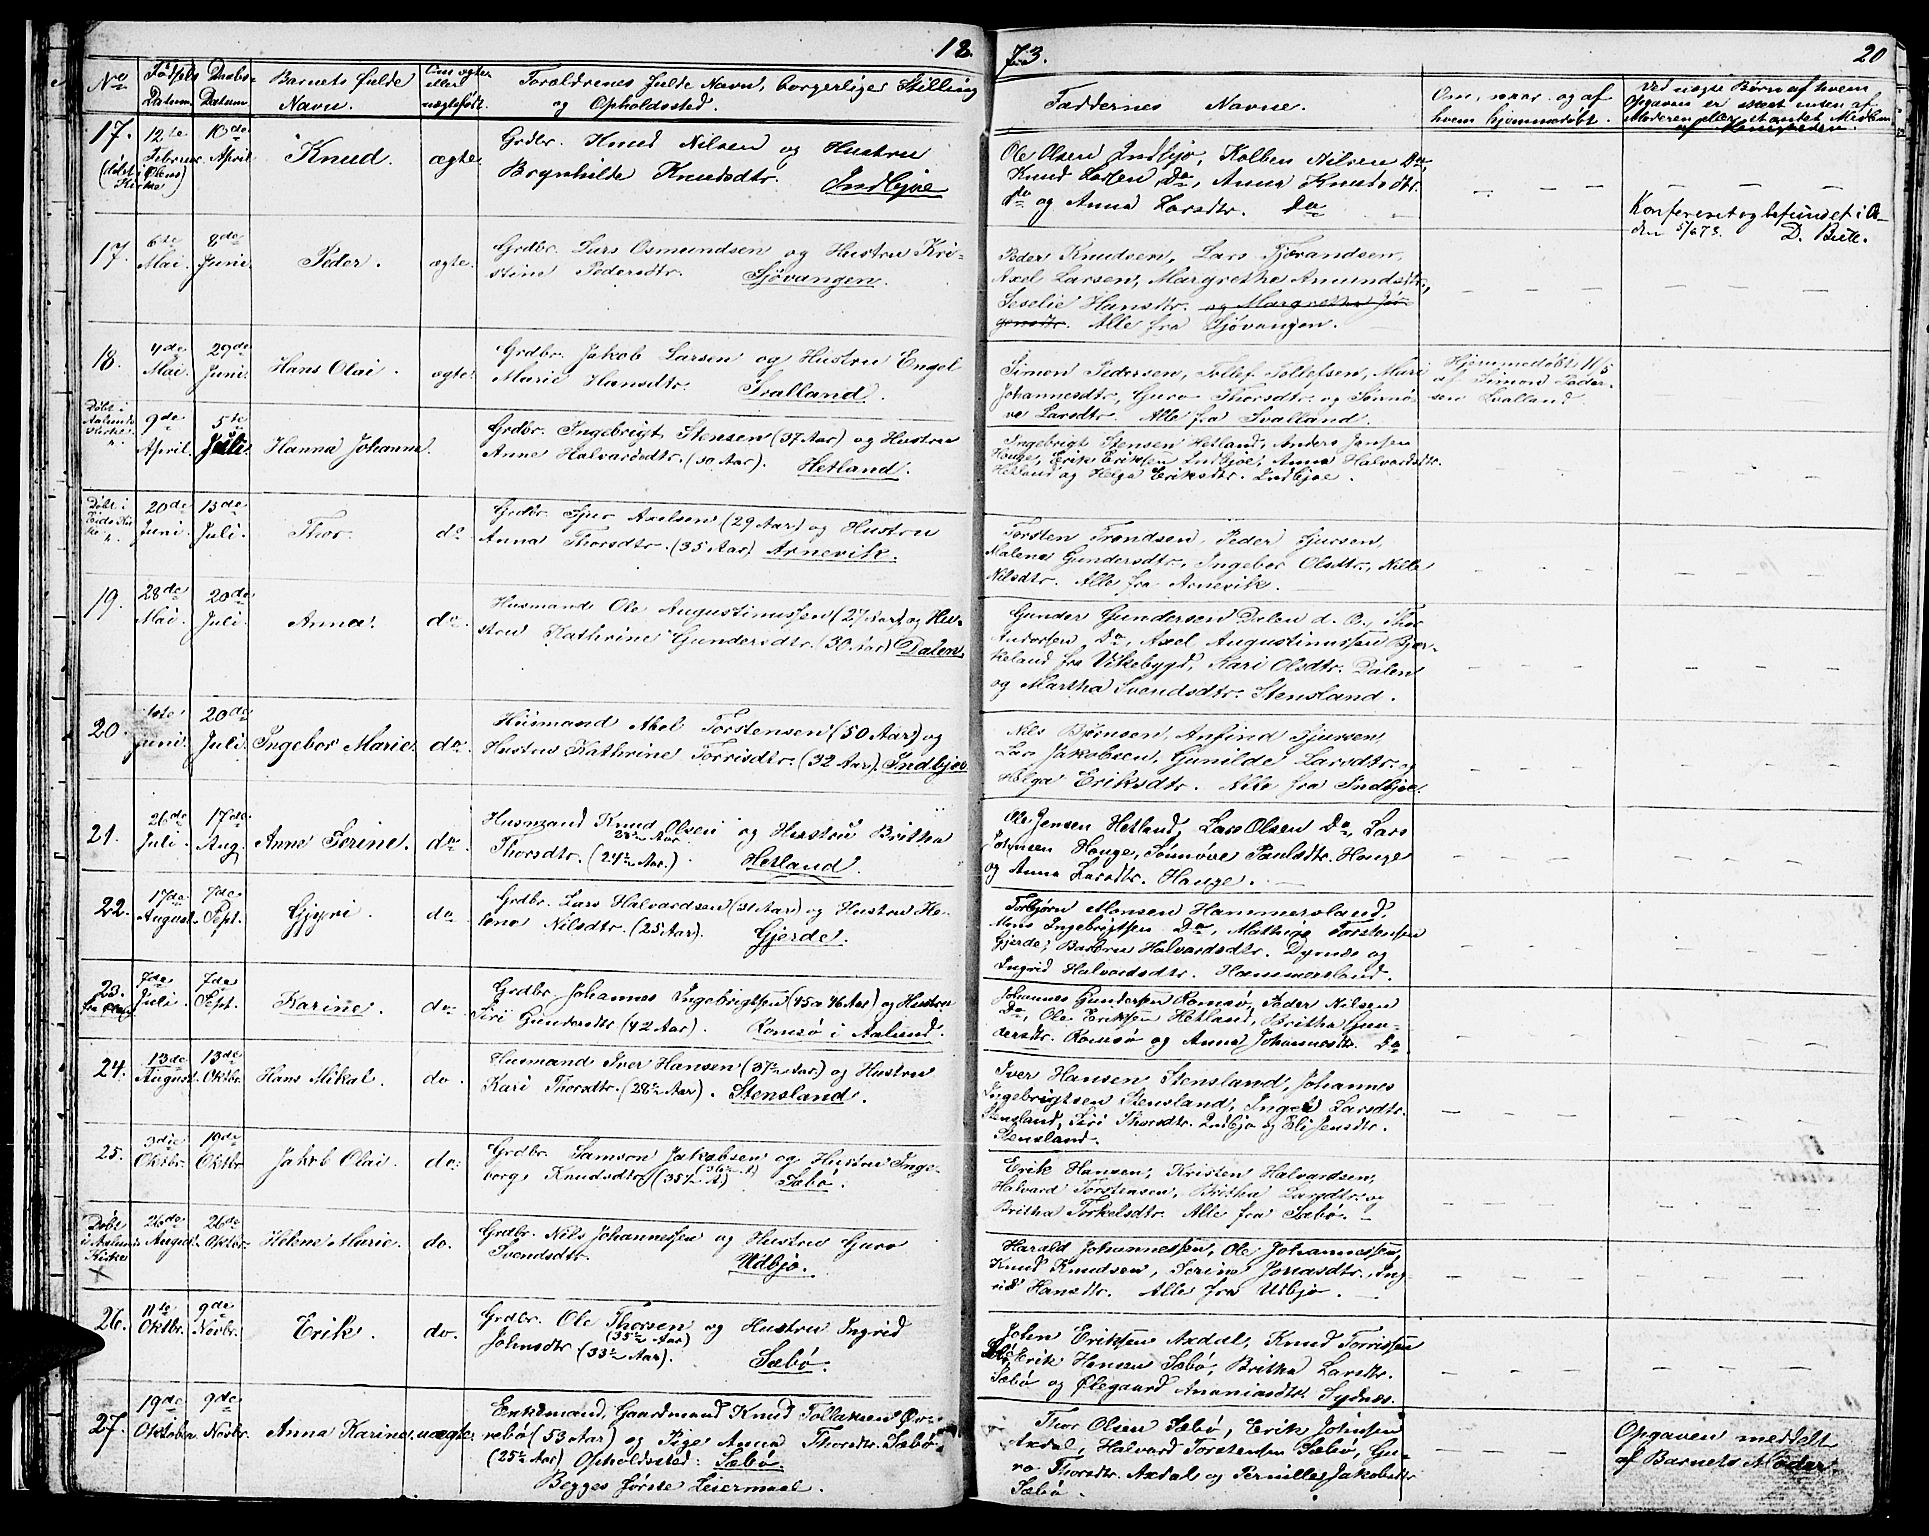 18
73.
20
No
Fødsels Datum.
Daabs- Datum
Barnets fulde Navn.
Om ægte eller uægtefødt.
Forældrenes fulde Navn, borgerlige Stilling og Opholdssted.
Faddernes Navne.
Om, naar og af hvem hjemmedøbt.
Ved uægte Børn af hvem Opgaven er skeet enten af Moderen eller et andet Medlem af Menigheden.
17. 12te Februar 13de April Knud. ægte. Grdbr. Knud Nilsen og Hustru
(døbt i Ølens Kirke) Brynhilde Knudsdtr. Indbjoe
Ole Olsen Indbjo, Kolben Nilsen Do,
Knud Larsen Do, Anna Knudsdtr.
Do og Anna Larsdtr. Do
Konfereret og befundet i O-
den 5/6 73. D. Bull.
17. 6te Mai. 8de Juni. Peder. ægte. Grdbr. Lars Osmundsen og Hustru Kri-
stine Pedersdtr. Sjøvangen.
Peder Knudsen, Lars Tjørandsen,
Axel Larsen, Margrethe Amundsdtr,
Seselie Hansdtr. og Margrethe Jør-
gensdtr. Alle fra Sjøvangen.
18. 4de Mai. 29de Juni. Hans Olai. ægte. Grdbr. Jakob Larsen og Hustru Engel
Marie Hansdtr. Svalland.
Simon Pedersen, Tollef Tollefsen, Mari
Johannesdtr, Guro Thorsdtr. og Sønnø-
ve Larsdtr. Alle fra Svalland.
Hjemmedøbt 11/5
af Simon Peder-
sen Svalland.
Døbt i Aalunds Kirke 9de April. 5te Juli. Hanna Johanna. Grdbr. Ingebrigt Stensen (37 Aar) og Hustru
Anne Halvardsdtr. (30 Aar). Hetland.
Ingebrigt Stensen Hetland, Anders Jensen
Houge, Erik Eriksen Indbjoe, Anna Halvardsdtr.
Hetland og Helga Eriksdtr. Indbjoe.
Døbt i Eids Kirke 20de Juni. 13de Juli. Thor. do Grdbr. Sjur Axelsen (29 Aar) og Hustru
Anna Thorsdtr. (35 Aar) Arnevik.
Torsten Trondsen, Peder Sjursen,
Malena Gundersdtr, Ingebor Olsdtr, Nille
Nilsdtr. Alle fra Arnevik.
19. 28de Mai. 20de Juli. Anna. do. Husmand Ole Augustinussen (27 Aar) og Hu-
stru Kathrine Gundersdtr. (30 Aar) Dalen.
Gunder Gundersen Dalen d. O., Thor
Andersen Do, Axel Augustinussen Bjør-
keland fra Vikebygd, Kari Olsdtr. Dalen
og Martha Svendsdtr. Stensland.
20. 1ste Juni. 20de Juli. Ingebor Marie. do. Husmand Axel Torstensen (50 Aar) og
Hustru Kathrine Torrisdtr. (32 Aar). Indbjoe
Nils Bjørnsen, Anfind Sjursen
Lars Jakobsen, Gunilde Larsdtr. og
Helga Eriksdtr. Alle fra Indbjoe.
21. 26de Juli. 17de Aug. Anne Serine. do. Husmand Knud Olsen og Hustru Britha
Thorsdtr. (24 Aar.) Hetland.
Ole Jensen Hetland, Lars Olsen Do, Lars
Johnsen Houge, Sønnøve Paulsdtr. Houge
og Anna Larsdtr. Hauge.
22. 17de August. 7de Sept. Gjyri. do. Grdbr. Lars Halvardsen (31 Aar) og Hustru He-
lene Nilsdtr. (25 Aar). Gjerde.
Torbjørn Monsen Hammersland,
Mons Ingebrigtsen Do, Mathias Torstensen
Gjerde, Barbru Halvardsdtr. Dynda og
Ingrid Halvardsdtr. Hammersland.
23. 7de Juli. 7de Sept. Karine. do. Grdbr. Johannes Ingebrigtsen (45 a 46 Aar) og Hustru
Siri Gundersdtr (42 Aar). Romsø i Aalund.
Johannes Gundersen Romsø, Peder Nilsen
Do, Ole Eriksen Hetland, Britha Gun-
dersdtr. Romsø og Anna Johannesdtr. Do
24. 13de August. 13de Oktbr. Hans Mikal. do. Husmand Iver Hansen (37 Aar) og Hustru
Kari Thorsdtr. (28 Aar). Stensland.
Iver Hansen Stensland, Johannes
Ingebrigtsen Stensland, Inger Larsdtr.
Stensland, Siri Thorsdtr. Indbjo og Elisensdtr.
Stensland.
25. 3die Oktbr. 19de Oktbr Jakob Olai. do. Grdbr. Samson Jakobsen og Hustru Inge-
borg Knudsdtr. (35 A) Sæbø.
Erik Hansen, Kristen Halvardsen,
Halvard Torstensen, Britha Larsdtr. og
Britha Torkelsdtr. Alle fra Sæbø.
Døbt i Aalunds Kirke 26de August. 26de Oktbr. Helene Marie. do. Grdbr. Nils Johannessen og Hustru Guro
Svendsdtr. Udbjo.
Harald Johannessen, Ole Johannessen,
Knud Knudsen, Serine Jonasdtr. Ing-
rid Hansdtr. Alle fra Utbjo.
26. 11te Oktbr. 9de Novbr. Erik. do. Grdbr. Ole Thorsen (35 Aar) og Hustru Ingrid
Johnsdtr. (33 Aar). Sæbø.
John Eriksen Axdal, Knud Torrissen
Sæbø, Erik Hansen Sæbø, Britha Larsdtr.
Sæbø og Ølegaard Ananiasdtr. Sydnes.
27. 19de Oktober 9de Novbr. Anna Karine. uægte. Enkemand, Gaardmand Knud Tollaksen Øv-
rebø (53 Aar) og Pige Anna Thorsdtr. Sæbø
(25 Aar) Opholdssted: Sæbø.
Begges første Leiermaal.
Thor Olsen Sæbø, Erik Johnsen
Axdal, Halvard Torstensen Sæbø, Gu-
ro Thorsdtr. Axdal og Pernille Jakobsdtr
Sæbø.
Opgaven meddelt
af Barnets Moder.